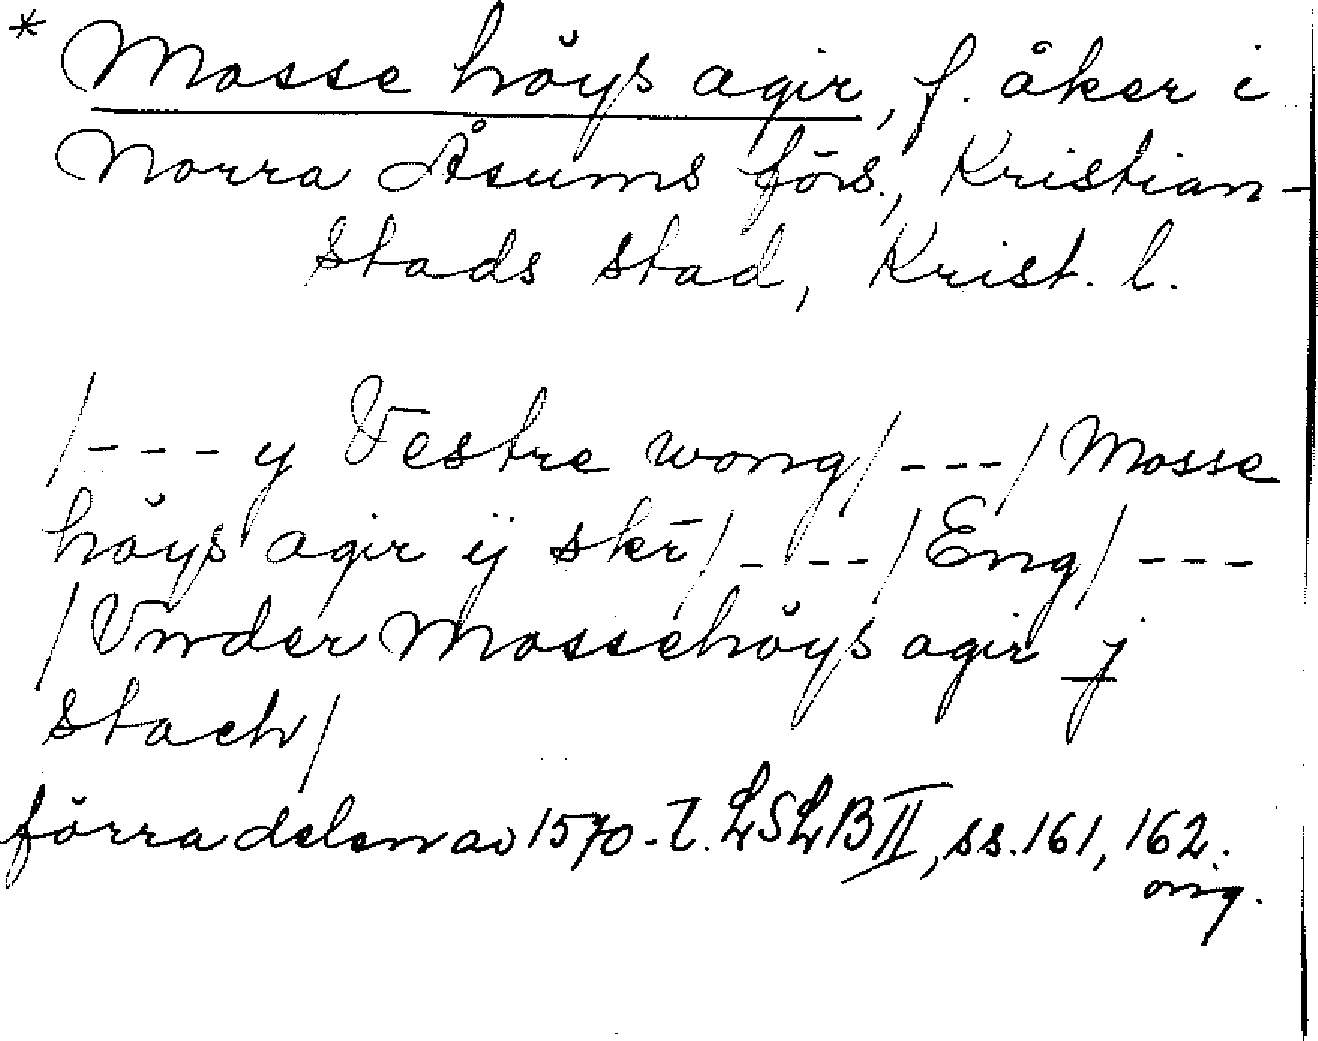 * Mosse höys agir, f. åker i
Norra Åsums förs., Kristian-
stads stad, Krist. l.
/--- y Vestre wong/---/Mosse
höys agir ij skī/---/Eng/---
/Vnder Mossehöys agir j
stach/
förra delen av 1570-t. LSLB II, ss. 161, 162.
orig.